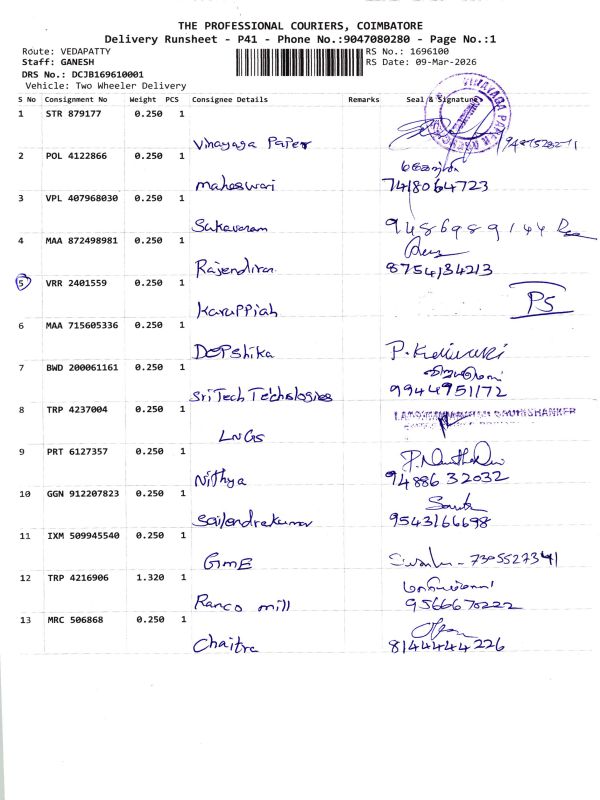 THE PROFESSIONAL COURIERS, COIMBATORE
Delivery Runsheet - P41 - Phone No.:9047080280 - Page No.:1
Route: VEDAPATTY RS No.: 1696100
Staff: GANESH RS Date: 09-Mar-2026
DRS No.: DCJB169610001
Vehicle: Two Wheeler Delivery
S No Consignment No Weight PCS Consignee Details Remarks Seal & Signature
1 STR 879177 0.250 1
Vinayaga Paper
2 POL 4122866 0.250 1
Maheswari 7418064723
3 VPL 407968030 0.250 1
Sukavaram 9486989144
4 MAA 872498981 0.250 1
Rajendiran 8754134213
5 VRR 2401559 0.250 1 PS
Karuppiah
6 MAA 715605336 0.250 1
Deepshika
7 BWD 200061161 0.250 1
Sri Tech Technologies 9944951172
8 TRP 4237004 0.250 1
LNGS
9 PRT 6127357 0.250 1
Nithya 9488632032
10 GGN 912207823 0.250 1
Sailendrakumar 9543166698
11 IXM 509945540 0.250 1
GME 7305527341
12 TRP 4216906 1.320 1
Ranco mill 9566670222
13 MRC 506868 0.250 1
Chaitra 8144444226